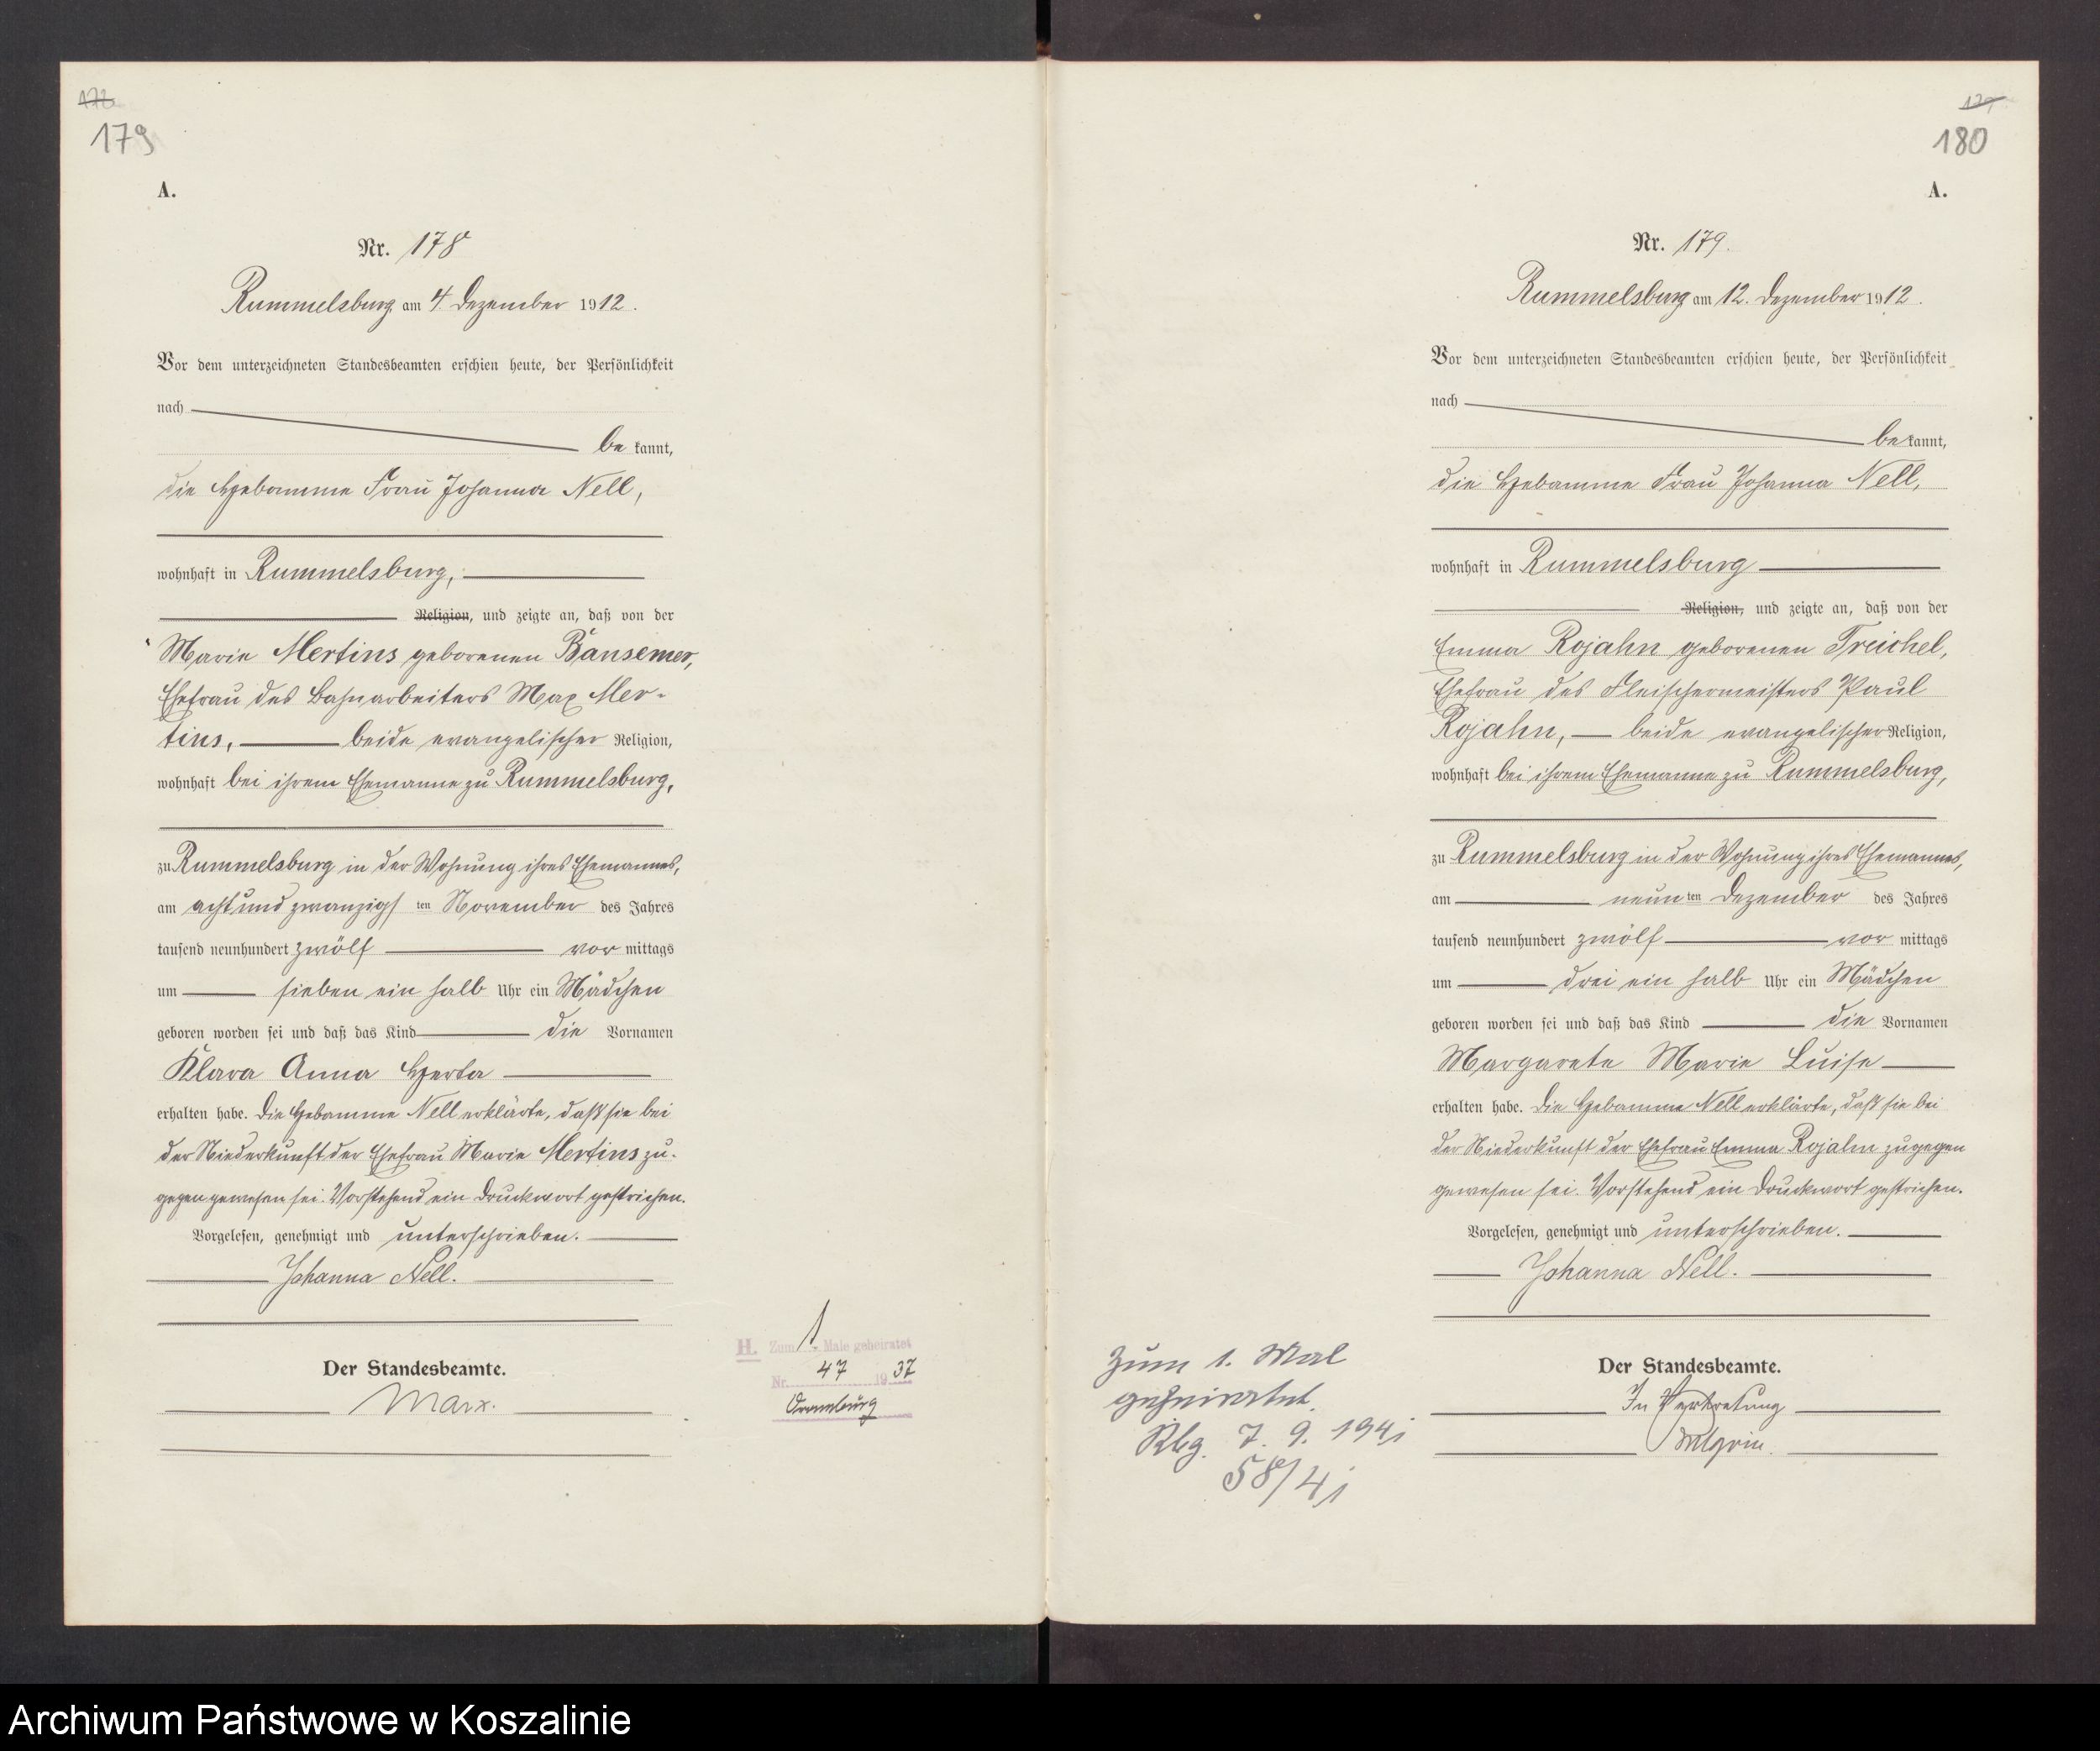 179
A.
Nr. 178
Rummelsburg, am 4. Dezember 1912.
Vor dem unterzeichneten Standesbeamten erschien heute, der Persönlichkeit
nach
be kannt,
die Hebamme Frau Johanna Nell,
wohnhaft in Rummelsburg,
Religion, und zeigte an, daß von der
Marie Mertins geborenen Bansemer,
Ehefrau des Bahnarbeiters Max Mer-
tins, beide evangelischer Religion,
wohnhaft bei ihrem Ehemanne zu Rummelsburg,
zu Rummelsburg in der Wohnung ihres Ehemannes,
am achtundzwanzigsten November des Jahres
tausend neunhundert zwölf vor mittags
um sieben ein halb Uhr ein Mädchen
geboren worden sei und daß das Kind die Vornamen
Klara Anna Herta
erhalten habe. Die Hebamme Nell erklärte, daß sie bei
der Niederkunft der Ehefrau Marie Mertins zu-
gegen gewesen sei. Vorstehend ein Druckwort gestrichen.
Vorgelesen, genehmigt und unterschrieben.
Johanna Nell.
Der Standesbeamte.
Marx.
H. Zum 1. Male geheiratet
Nr. 47 1937
Dramburg
180
A.
Nr. 179.
Rummelsburg am 12. Dezember 1912.
Vor dem unterzeichneten Standesbeamten erschien heute, der Persönlichkeit
nach
bekannt,
die Hebamme Frau Johanna Nell,
wohnhaft in Rummelsburg
Religion, und zeigte an, daß von der
Emma Rojahn geborenen Treichel,
Ehefrau des Fleischermeisters Paul
Rojahn, beide evangelischer Religion,
wohnhaft bei ihrem Ehemanne zu Rummelsburg,
zu Rummelsburg in der Wohnung ihres Ehemannes,
am neunten Dezember des Jahres
tausend neunhundert zwölf vor mittags
um drei ein halb Uhr ein Mädchen
geboren worden sei und daß das Kind die Vornamen
Margarete Marie Luise
erhalten habe. Die Hebamme Nell erklärte, daß sie bei
der Niederkunft der Ehefrau Emma Rojahn zugegen
gewesen sei. Vorstehend ein Druckwort gestrichen.
Vorgelesen, genehmigt und unterschrieben.
Johanna Nell.
Der Standesbeamte.
In Vertretung
Zum 1. Mal
geheiratet.
Rbg. 7. 9. 1941
58/41
Archiwum Państwowe w Koszalinie